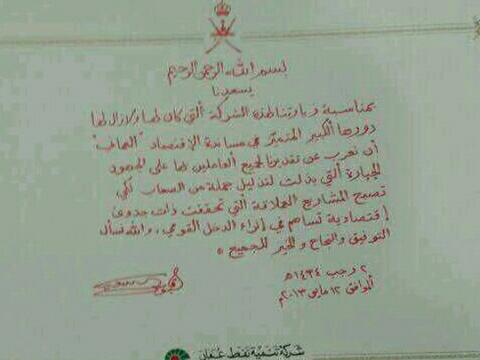 بسم الله الرحمن الرحيم
يسعدنا
بمناسبة زيارتنا لهذه الشركة التي كان لها ولازال لها
دورها الكبير المتميز في مساندة الإقتصاد "العماني"
أن نعرب عن تقديرنا لجميع العاملين لها على الجهود
الجبارة التي بذلت لتذليل جملة من الصعاب لكي
تصبح المشاريع العملاقة التي تحققت ذات جدوى
إقتصادية تساهم في إثراء الدخل القومي، والله نسأل
التوفيق والنجاح والخير للجميع.
٢ رجب ١٤٣٤هـ
الموافق ١٢ مايو ٢٠١٣م
شركة تنمية نفط عُمان